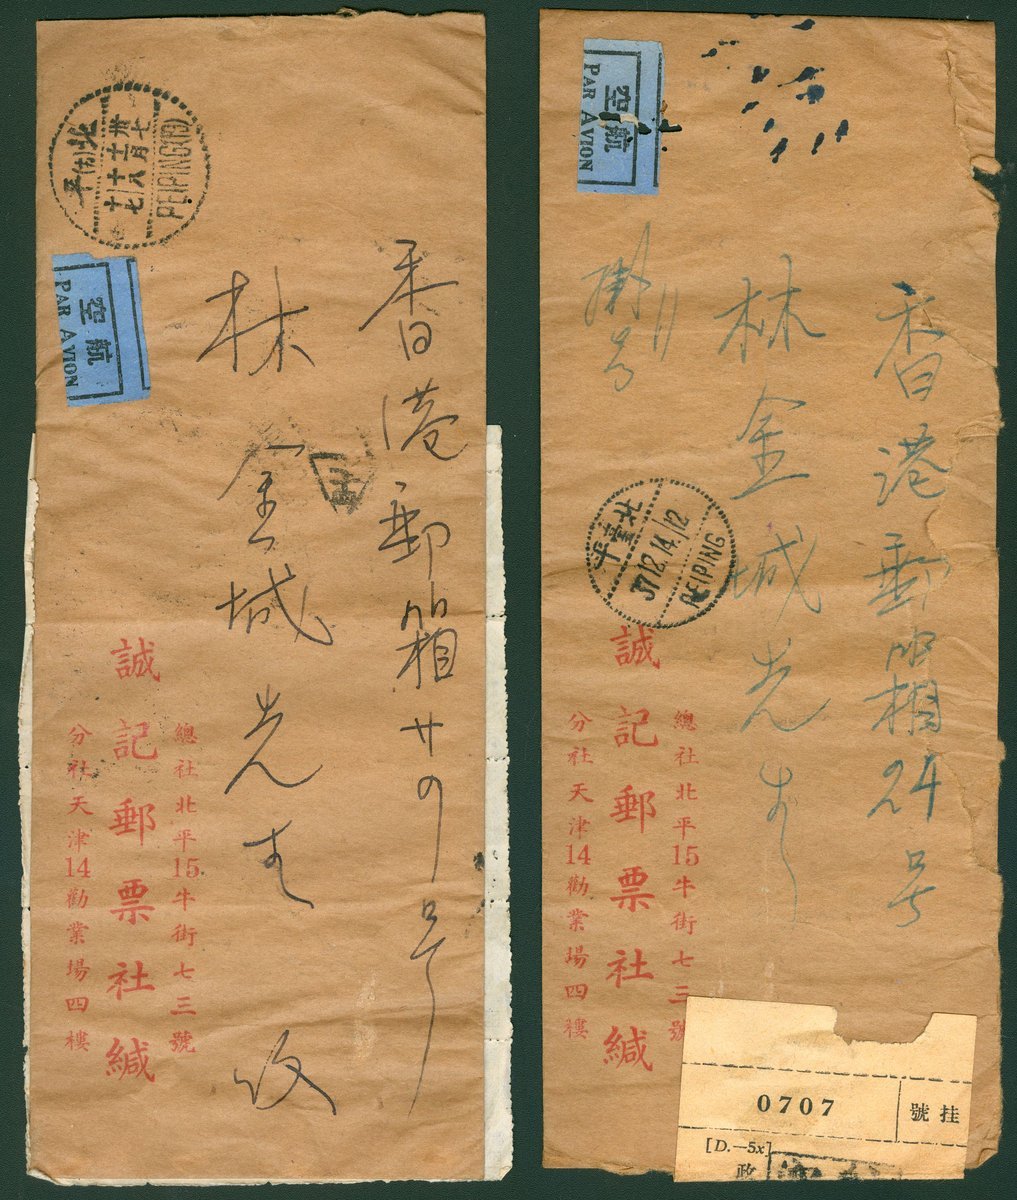 北平
卅七
十二月
十六
十七
PEIPING(13)
航空
PAR AVION
香港郵箱廿四号
林金城先生 收
總社北平15牛街七三號
誠記郵票社緘
分社天津14勸業場四樓
航空
PAR AVION
掛号
香港郵箱24号
林金城先生
北臺平
37.12.14./12
PEIPING
總社北平15牛街七三號
誠記郵票社緘
分社天津14勸業場四樓
挂號
0707
[D.—5x]
政